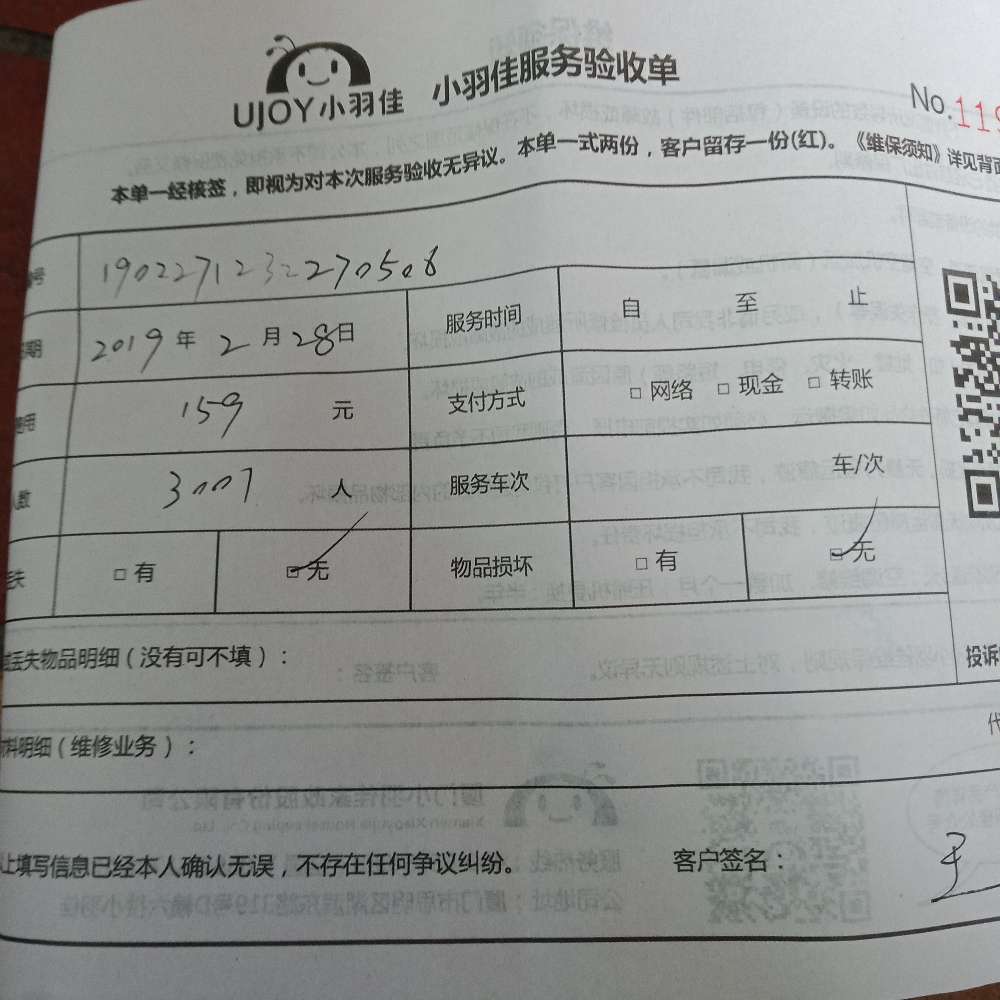 UJOY小羽佳 小羽佳服务验收单
No.119
本单一经核签，即视为对本次服务验收无异议。本单一式两份，客户留存一份(红)。《维保须知》详见背面
号 1902271232270508
期 2019年2月28日 服务时间 自 至 止
用 159 元 支付方式 □网络 □现金 □转账
人数 3007 人 服务车次 车/次
失 □有 □无 物品损坏 □有 □无
丢失物品明细（没有可不填）：
投诉
料明细（维修业务）：
代
上填写信息已经本人确认无误，不存在任何争议纠纷。 客户签名：